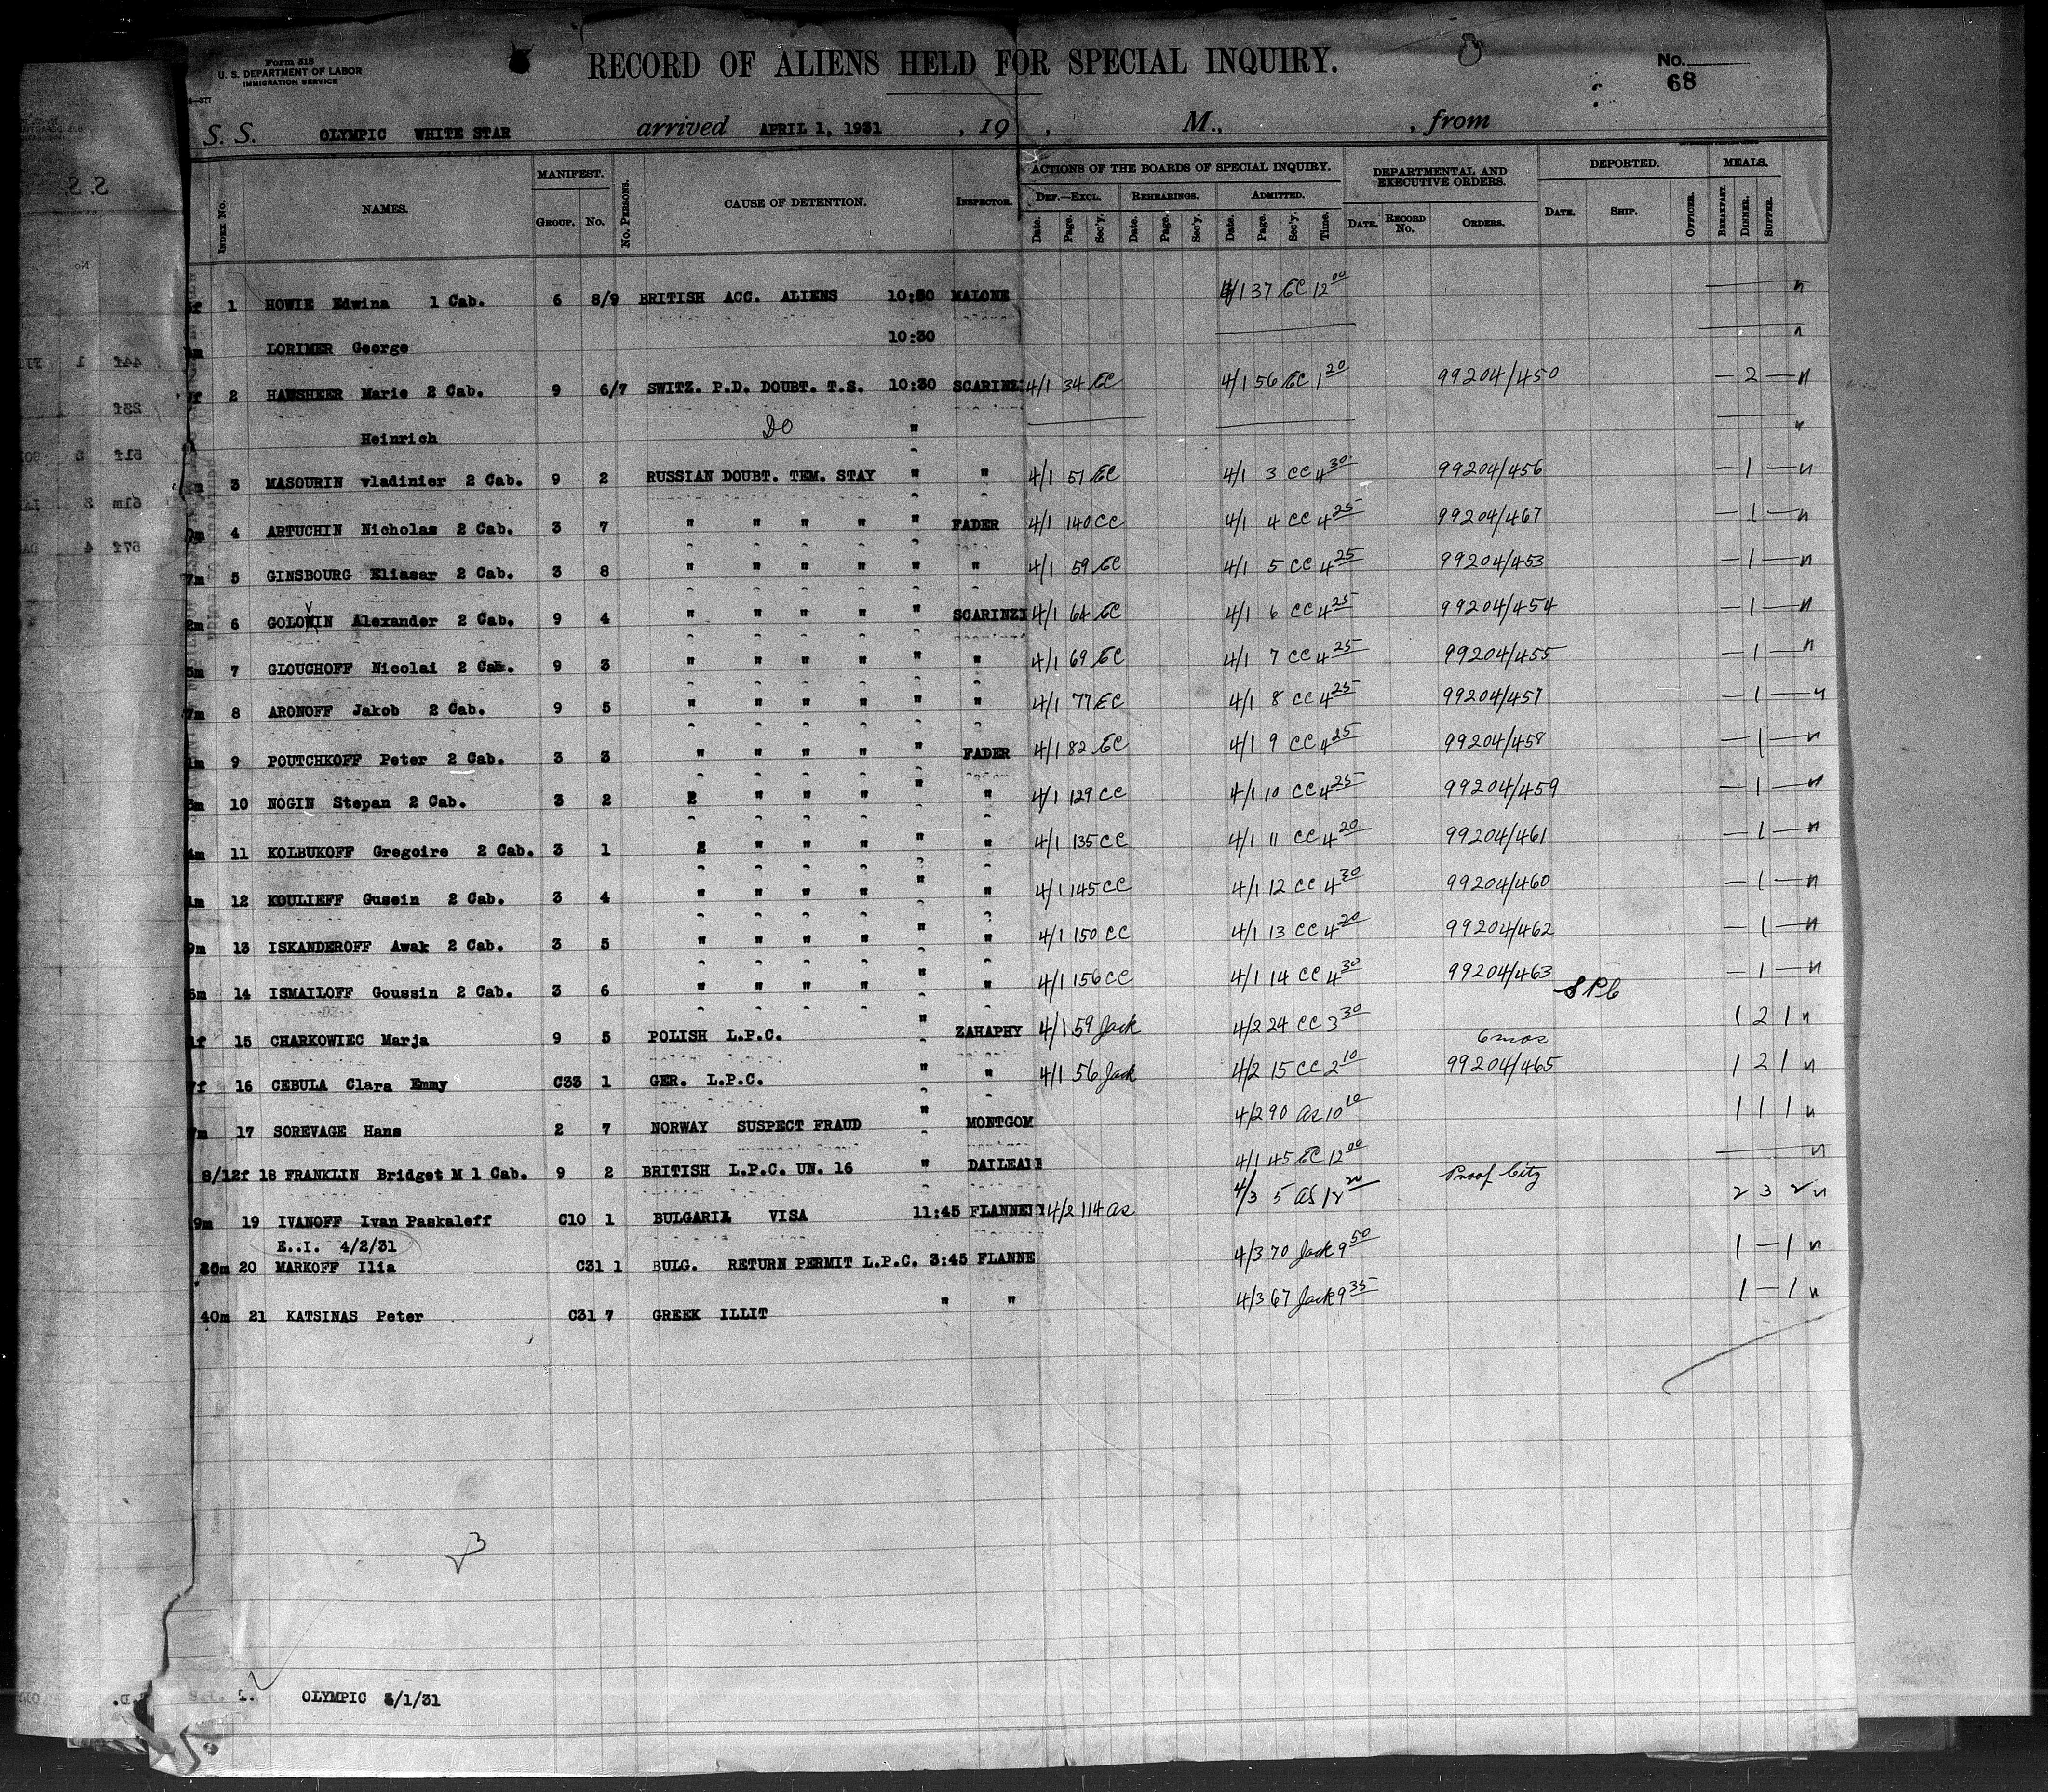 Form 518
U. S. DEPARTMENT OF LABOR
IMMIGRATION SERVICE
RECORD OF ALIENS HELD FOR SPECIAL INQUIRY.
No.
68
S. S. OLYMPIC WHITE STAR arrived APRIL 1, 1931, 19 , M., , from
INDEX No. NAMES. MANIFEST. GROUP. No. No. PERSONS. CAUSE OF DETENTION. INSPECTOR. ACTIONS OF THE BOARDS OF SPECIAL INQUIRY. DEF.—EXCL. REHEARINGS. ADMITTED. DEPARTMENTAL AND EXECUTIVE ORDERS. DEPORTED. MEALS.
Date. Page. Sec'y. Date. Page. Sec'y. Date. Page. Sec'y. Time. DATE. RECORD No. ORDERS. DATE. SHIP. OFFICER. BREAKFAST. DINNER. SUPPER.
1 HOWIE Edwina 1 Cab. 6 8/9 BRITISH ACC. ALIENS 10:30 MALONE 4/1 37 EC 12 00 — n
LORIMER George 10:30 — n
2 HAWSHEER Marie 2 Cab. 9 6/7 SWITZ. P.D. DOUBT. T.S. 10:30 SCARINZI 4/1 34 EC 4/1 56 EC 1 20 99204/450 — 2 — n
Heinrich DO " — n
3 MASOURIN vladinier 2 Cab. 9 2 RUSSIAN DOUBT. TEM. STAY " " 4/1 51 EC 4/1 3 CC 4 30 99204/456 — 1 — n
4 ARTUCHIN Nicholas 2 Cab. 3 7 " " " " " FADER 4/1 140 CC 4/1 4 CC 4 25 99204/467 — 1 — n
7m 5 GINSBOURG Eliasar 2 Cab. 3 8 " " " " " " 4/1 59 EC 4/1 5 CC 4 25 99204/453 — 1 — n
2m 6 GOLOWIN Alexander 2 Cab. 9 4 " " " " " SCARINZI 4/1 64 EC 4/1 6 CC 4 25 99204/454 — 1 — n
5m 7 GLOUCHOFF Nicolai 2 Cab. 9 3 " " " " " " 4/1 69 EC 4/1 7 CC 4 25 99204/455 — 1 — n
7m 8 ARONOFF Jakob 2 Cab. 9 5 " " " " " " 4/1 77 EC 4/1 8 CC 4 25 99204/457 — 1 — n
1m 9 POUTCHKOFF Peter 2 Cab. 3 3 " " " " " FADER 4/1 82 EC 4/1 9 CC 4 25 99204/458 — 1 — n
10 NOGIN Stepan 2 Cab. 3 2 " " " " " " 4/1 129 CC 4/1 10 CC 4 25 99204/459 — 1 — n
11 KOLBUKOFF Gregoire 2 Cab. 3 1 " " " " " " 4/1 135 CC 4/1 11 CC 4 20 99204/461 — 1 — n
1m 12 KOULIEFF Gusein 2 Cab. 3 4 " " " " " " 4/1 145 CC 4/1 12 CC 4 30 99204/460 — 1 — n
9m 13 ISKANDEROFF Awak 2 Cab. 3 5 " " " " " " 4/1 150 CC 4/1 13 CC 4 20 99204/462 — 1 — n
14 ISMAILOFF Goussin 2 Cab. 3 6 " " " " " " 4/1 156 CC 4/1 14 CC 4 30 99204/463 — 1 — n
15 CHARKOWIEC Marja 9 5 POLISH L.P.C. " ZAHAPHY 4/1 59 Jack 4/2 24 CC 3 30 1 2 1 n
6 mos
7f 16 CEBULA Clara Emmy C33 1 GER. L.P.C. " " 4/1 56 Jack 4/2 15 CC 2 10 99204/465 1 2 1 n
7m 17 SOREVAGE Hans 2 7 NORWAY SUSPECT FRAUD " MONTGOM 4/2 90 as 10 10 1 1 1 n
8/12f 18 FRANKLIN Bridget M 1 Cab. 9 2 BRITISH L.P.C. UN. 16 " DAILEA 4/1 45 EC 12 00 Proof Citz — n
9m 19 IVANOFF Ivan Paskaleff C10 1 BULGARIA VISA 11:45 FLANNE 4/2 114 as 4/3 5 as 20 2 3 2 n
E..I. 4/2/31
20 MARKOFF Ilia C31 1 BULG. RETURN PERMIT L.P.C. 3:45 FLANNE 4/3 70 Jack 9 50 1 — 1 n
40m 21 KATSINAS Peter C31 7 GREEK ILLIT " " 4/3 67 Jack 9 35 1 — 1 n
OLYMPIC /1/31